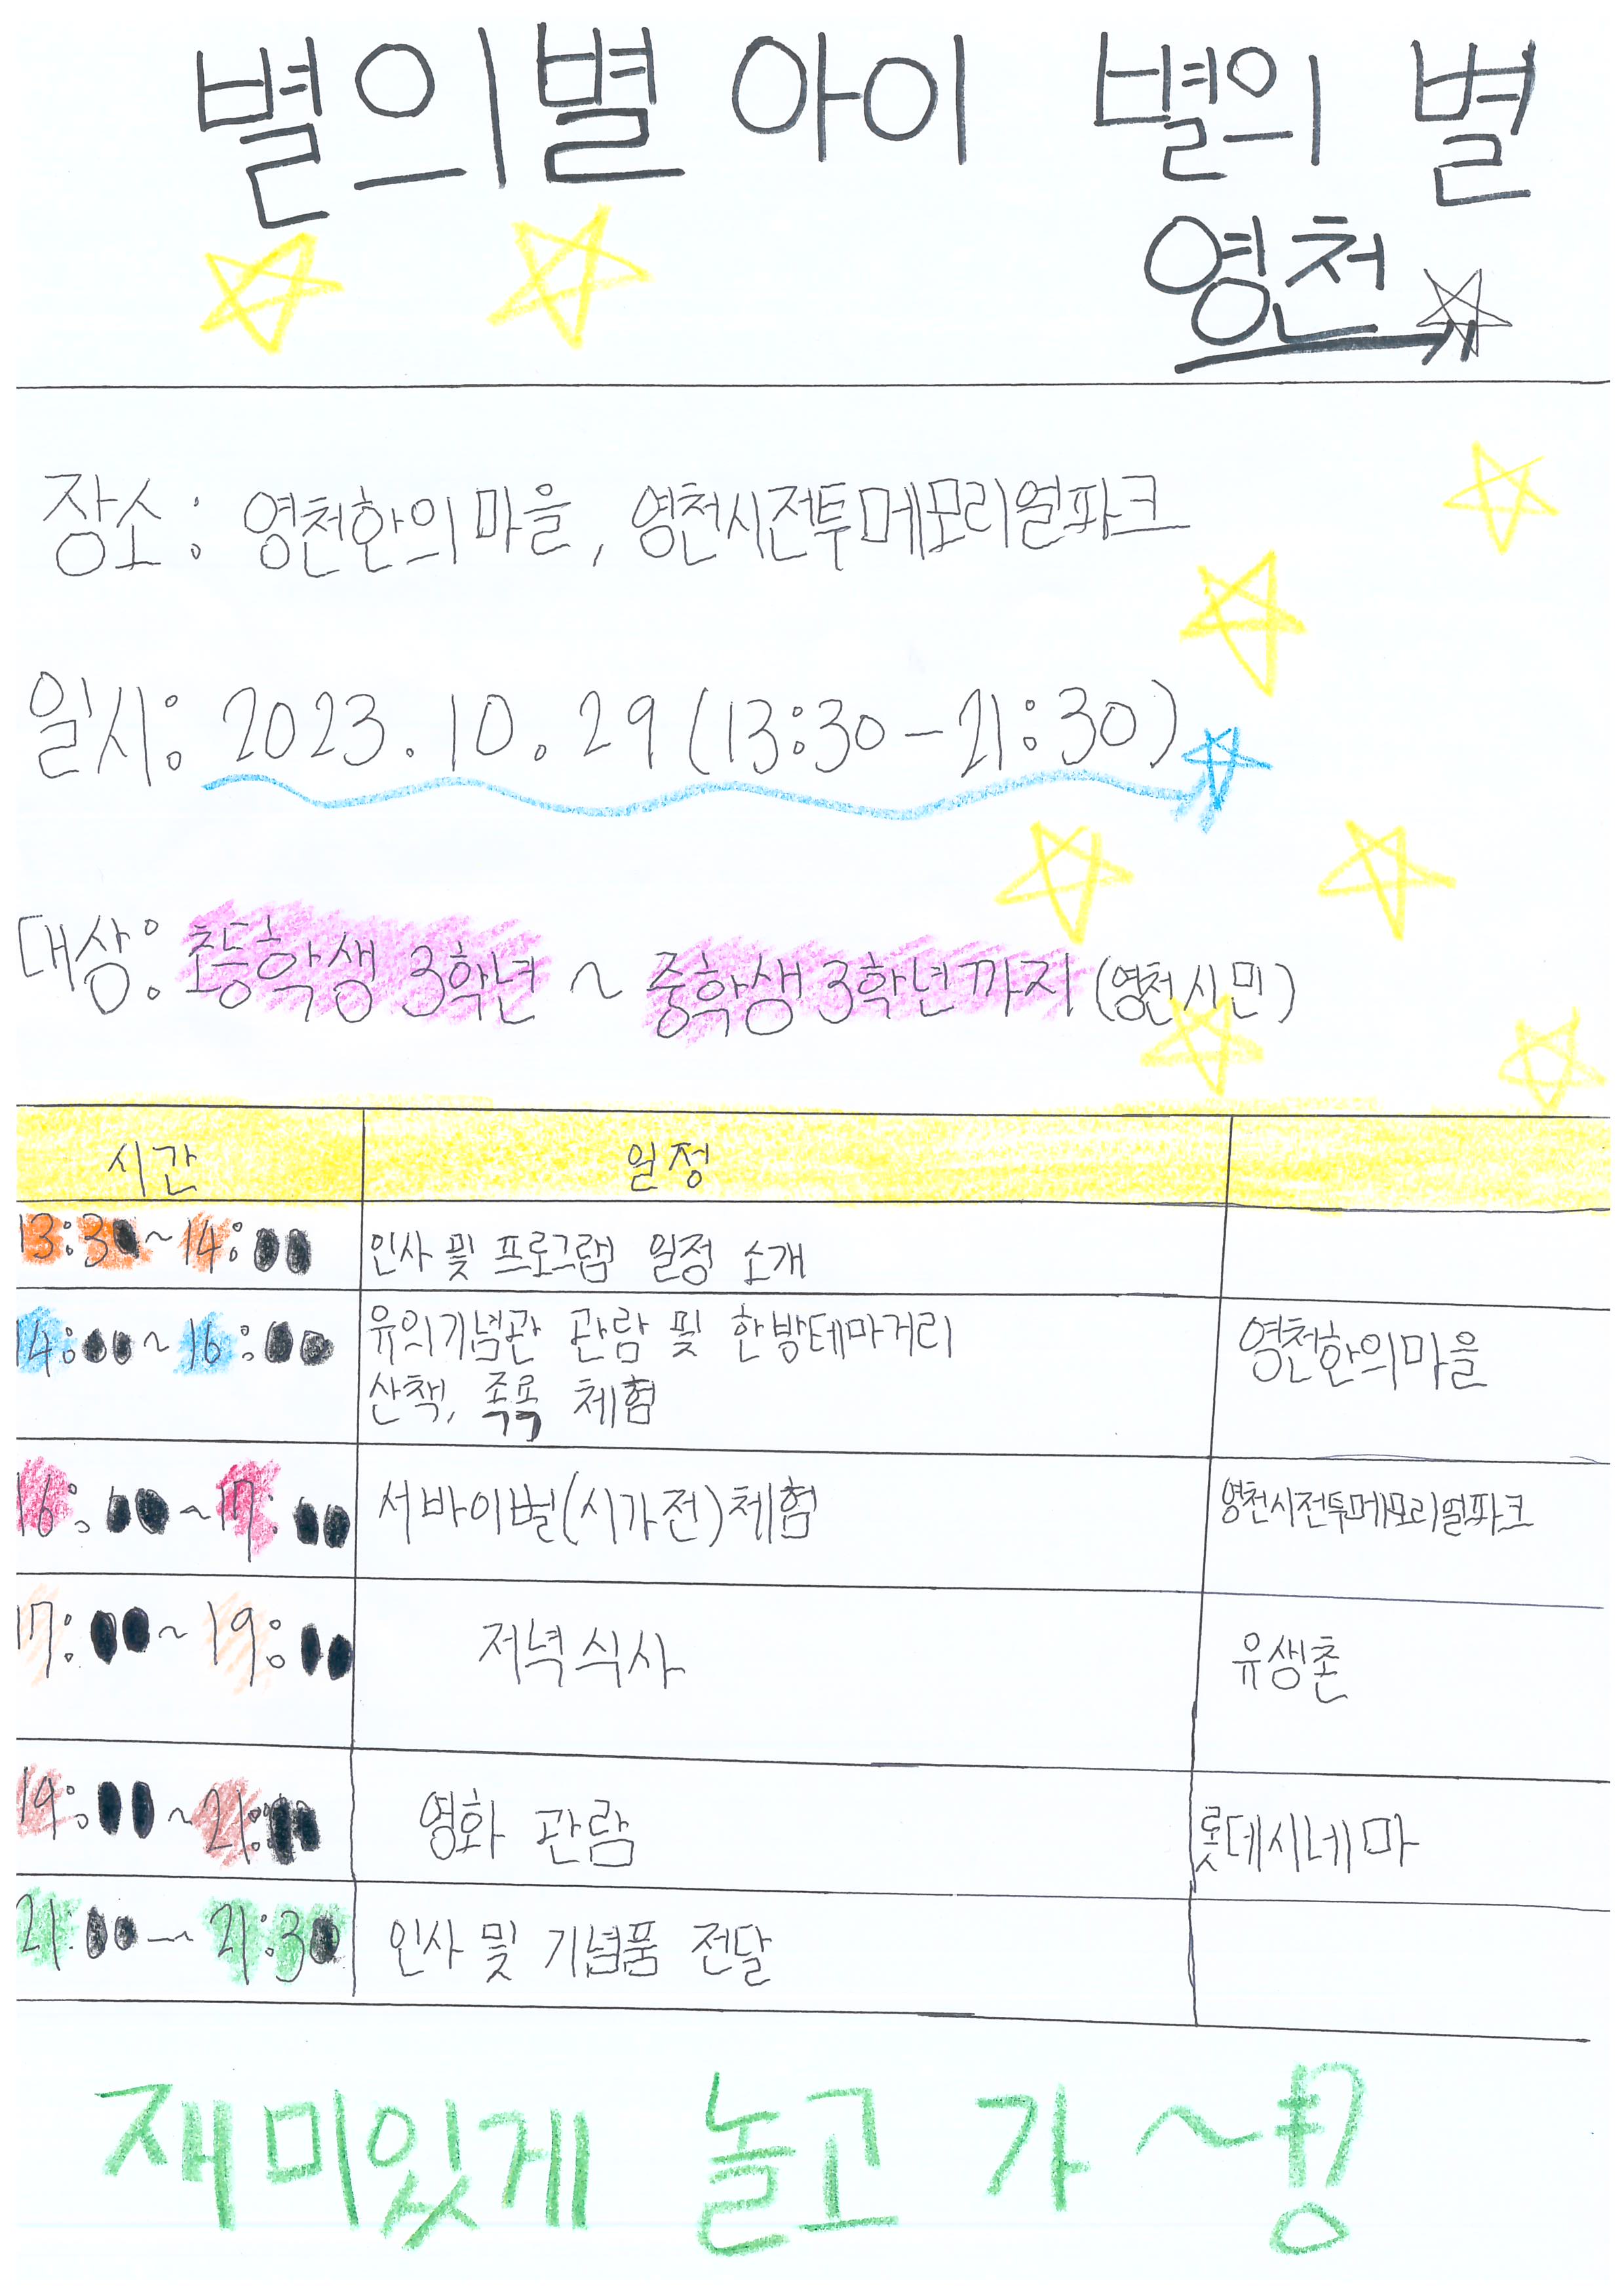 별의별 아이 별의 별
영천
장소: 영천한의마을, 영천시전투메모리얼파크
일시: 2023.10.29(13:30-21:30)
대상: 초등학생 3학년 ~ 중학생 3학년까지 (영천시민)
시간 일정
13:30~14:00 인사 및 프로그램 일정 소개
14:00~16:00 유의기념관 관람 및 한방테마거리 영천한의마을
산책, 족욕 체험
16:00~17:00 서바이벌(시가전)체험 영천시전투메모리얼파크
17:00~19:00 저녁식사 유생촌
19:00~21:00 영화 관람 롯데시네마
21:00~21:30 인사 및 기념품 전달
재미있게 놀고 가~!